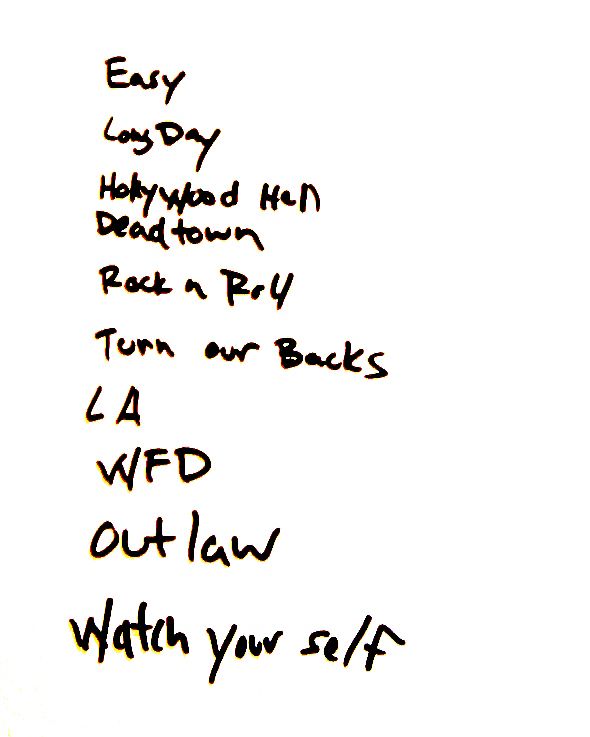 Easy
Long Day
Hollywood Hell
Deadtown
Rock n Roll
Turn our Backs
LA
WFD
Outlaw
Watch your self